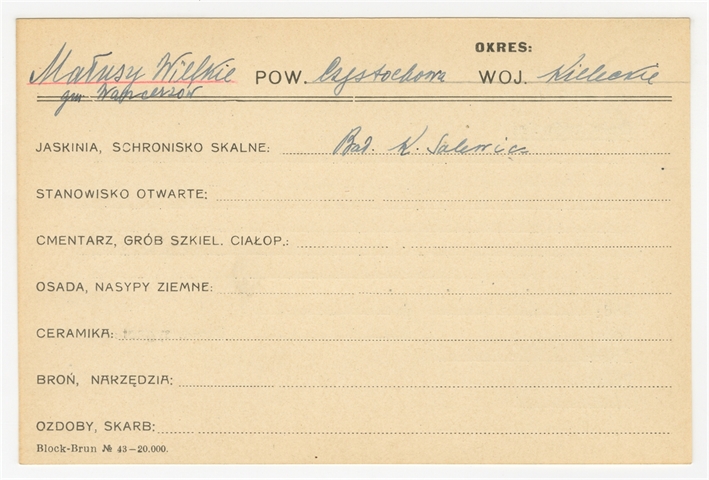 OKRES:
Małusy Wielkie POW. Częstochowa WOJ. Kieleckie
gm Wancerzów
JASKINIA, SCHRONISKO SKALNE: Bad. K. Salewicz
STANOWISKO OTWARTE:
CMENTARZ, GRÓB SZKIEL. CIAŁOP.:
OSADA, NASYPY ZIEMNE:
CERAMIKA:
BROŃ, NARZĘDZIA:
OZDOBY, SKARB:
Block-Brun № 43—20.000.